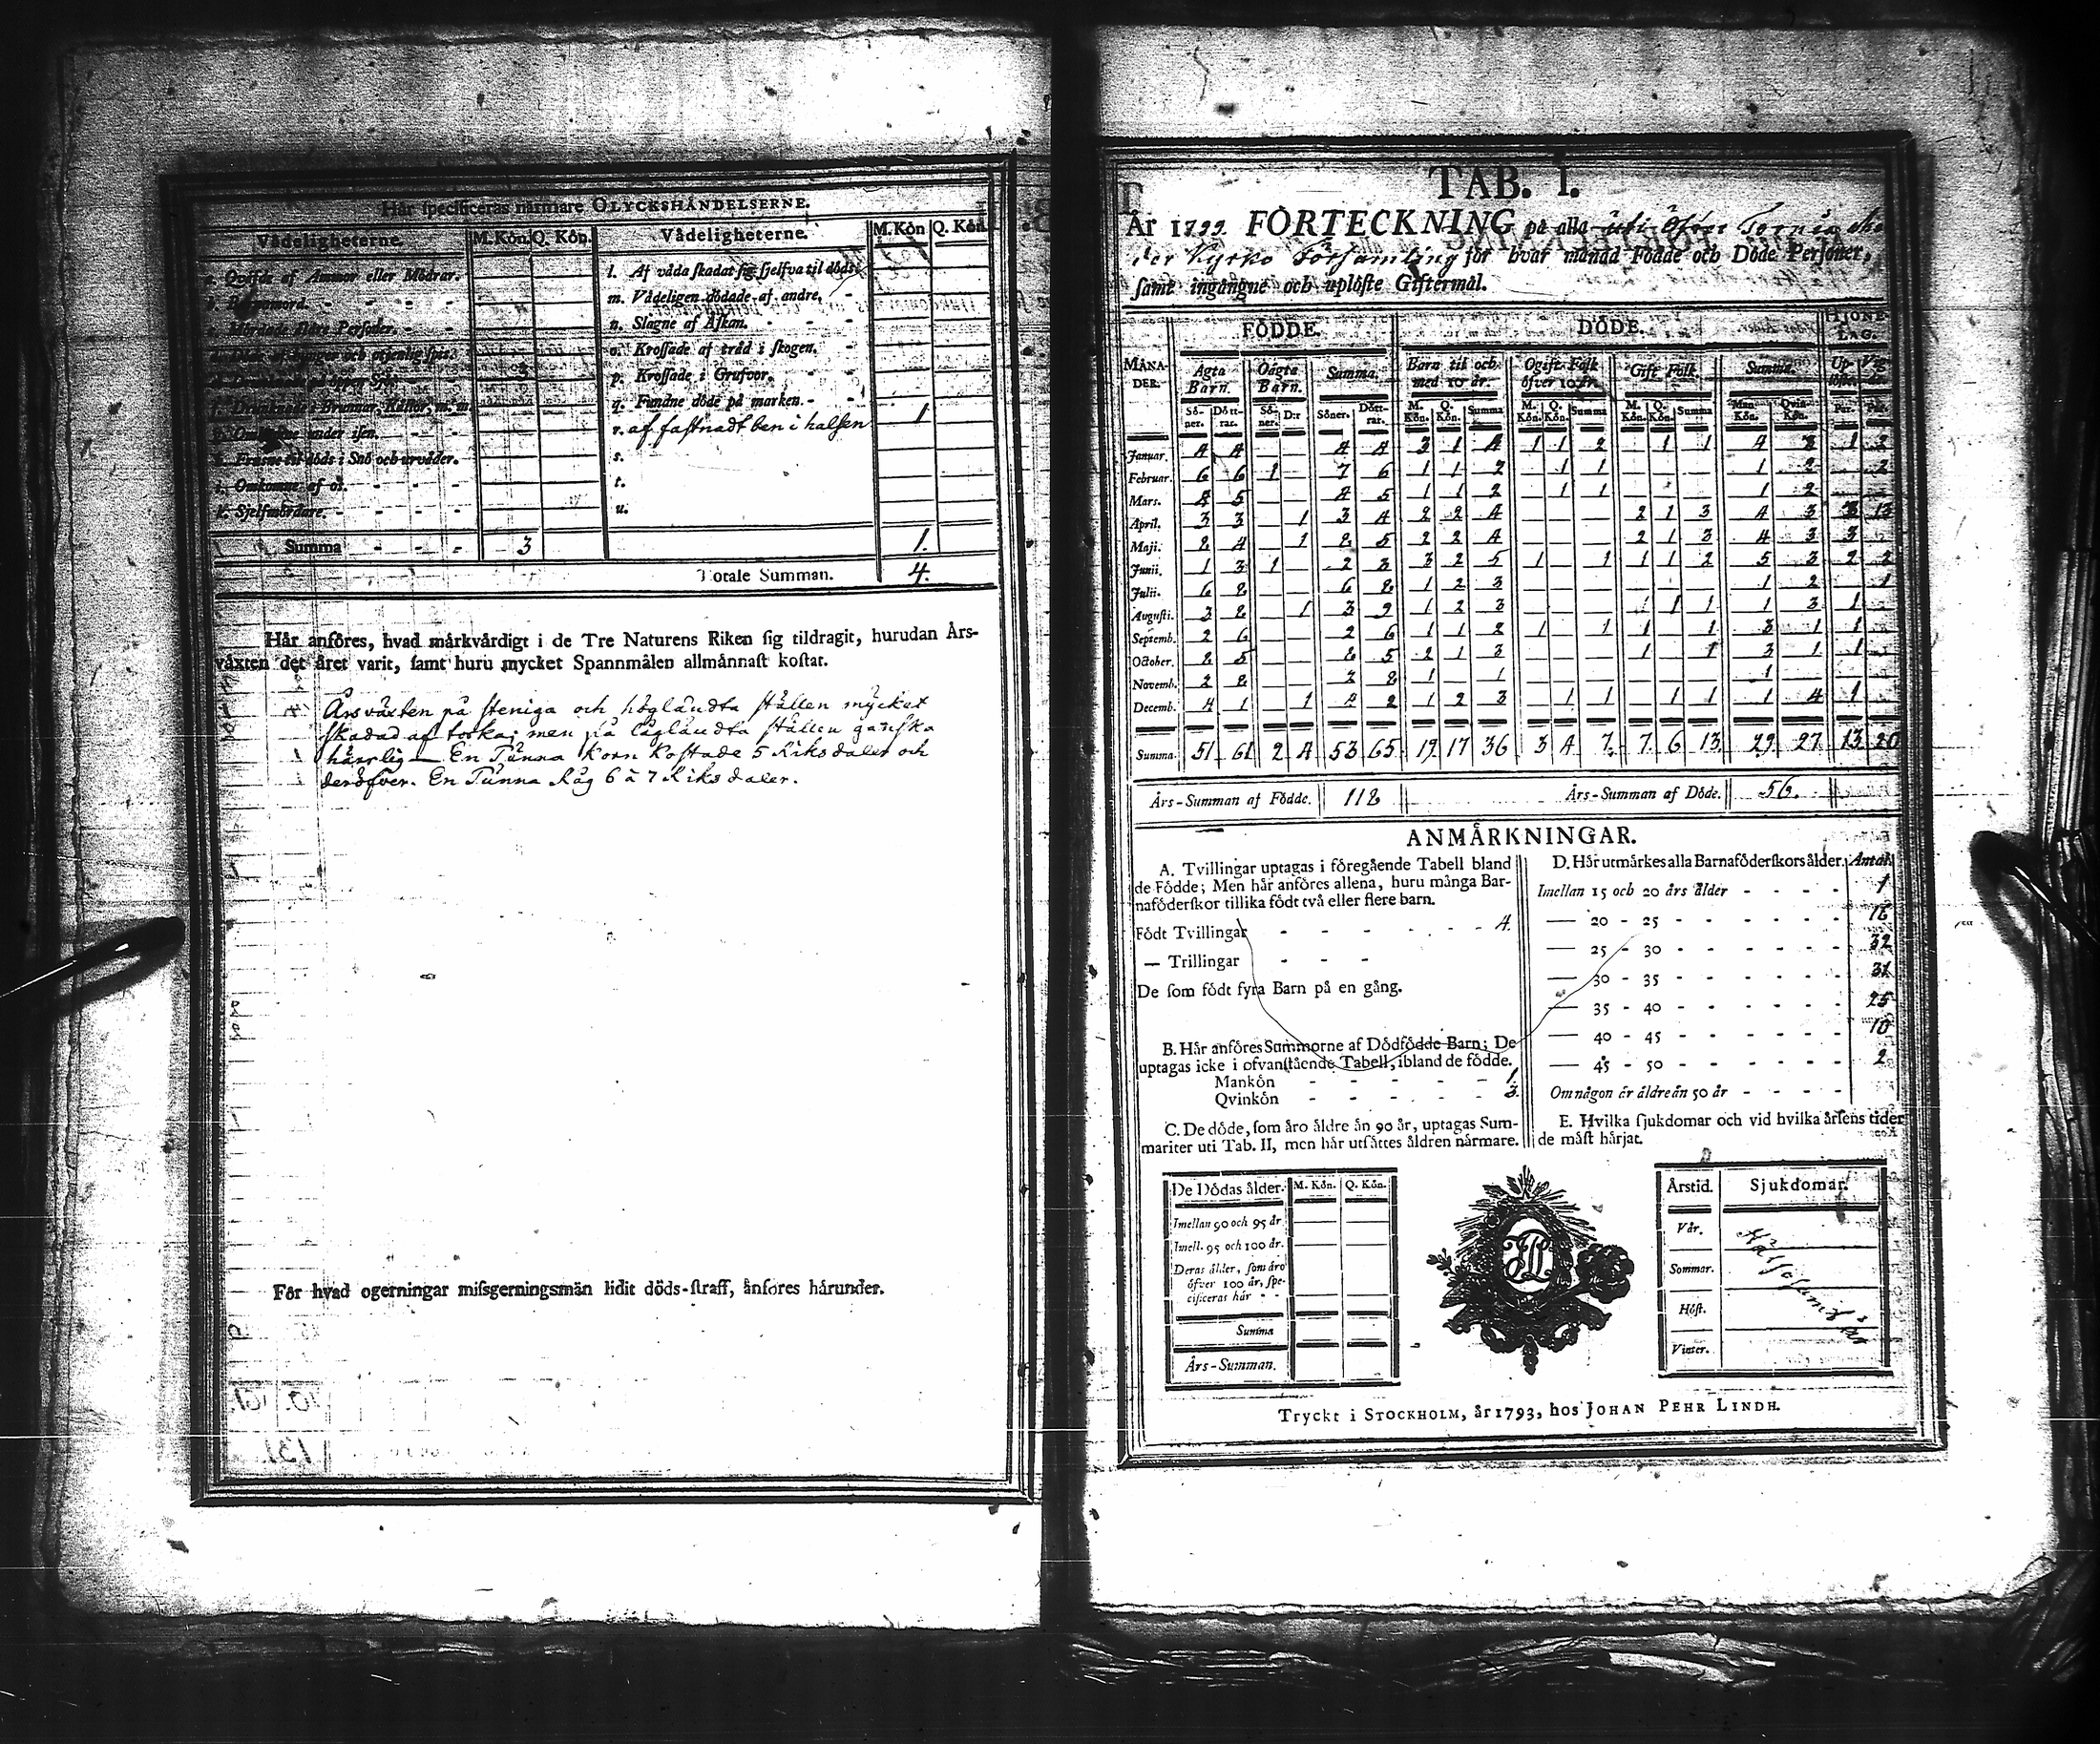 Hår specificeras nårmare OLYCKSHÅNDELSERNE.
Vådeligheterne. M.Kón. Q. Kón. Vådeligheterne. M.Kón Q. Kón.
a. Qvåfde af Ammor eller Mödrar.
l. Af våda skadat sig sjelfva til döds.
b. Barnamord.
m. Vådeligen dödade af andre.
n. Slagne af Åskan.
o. Krossade af tråd i skogen.
p. Krossade i Grufvor.
q. Fundne döde på marken.
r. af fastnadt ben i halsen 1
h. Frusne til döds i Snö och urväder.
s.
i. Omkomne af os.
t.
k. Sjelfmördare.
u.
Summa 3 1.
Totale Summan. 4.
Hår anföres, hvad mårkvårdigt i de Tre Naturens Riken sig tildragit, hurudan Års-
våxten det året varit, samt huru mycket Spannmålen allmånnast kostat.
Årsväxten på steniga och högländta ställen mycket
skadad af torka; men på lågländta ställen ganska
härrlig — En Tunna Korn kostade 5 Riksdaler och
deröfver. En Tunna Råg 6 à 7 Riksdaler.
För hvad ogerningar missgerningsmän lidit döds-straff, anföres hårunder.
TAB. I.
År 1799. FÖRTECKNING på alla uti Öfver Torneå
Kyrko Församling för hvar månad Födde och Döde Personer,
samt ingångne och uplöste Giftermål.
FÖDDE. DÖDE. HJONE-LAG.
MÅNA-DER. Ågta Barn. Oågta Barn. Summa. Barn til och med 10 år. Ogift Folk öfver 10 år. Gift Folk. Summa.
Sö-ner. Dött-rar. Sö-ner. D:r Söner. Dött-rar. M. Kön. Q. Kön. Summa M. Kön. Q. Kön. Summa M. Kön. Q. Kön. Summa Man-Kön. Qvin-Kön. Par. Par.
Januar. 4 4 4 4 3 1 4 1 1 2 1 1 4 3 1 2
Februar. 6 6 1 7 6 1 1 2 1 1 1 2 2
Mars. 8 5 8 5 1 1 2 1 1 1 2
April. 3 3 1 3 4 2 2 4 2 1 3 4 3 3 13
Maji. 8 4 1 8 5 2 2 4 2 1 3 4 3 3
Junii. 1 3 1 2 3 3 2 5 1 1 1 1 2 5 3 2 2
Julii. 6 8 6 8 1 2 3 1 2 1
Augusti. 3 8 1 3 9 1 2 3 1 1 1 3 1
Septemb. 2 6 2 6 1 1 2 1 1 1 1 3 1 1
October. 8 5 8 5 2 1 3 1 1 3 1 1
Novemb. 2 8 2 8 1 1 1
Decemb. 4 1 1 4 2 1 2 3 1 1 1 1 1 4 1
Summa 51 61 2 4 53 65 19 17 36 3 4 7. 7 6 13 29 27 13 20
Års-Summan af Födde. 118 Års-Summan af Döde. 56.
ANMÅRKNINGAR.
A. Tvillingar uptagas i föregående Tabell bland
de Födde; Men hår anföres allena, huru många Bar-
naföderskor tillika födt två eller flere barn.
Födt Tvillingar 4.
— Trillingar
De som födt fyra Barn på en gång.
B. Hår anföres Summorne af Dödfödde Barn; De
uptagas icke i ofvanstående Tabell, ibland de födde.
Mankön 1.
Qvinkön 3.
C. De döde, som åro åldre ån 90 år, uptagas Sum-
mariter uti Tab. II, men hår utsåttes åldren nårmare.
D. Hår utmårkes alla Barnaföderskors ålder. Antal.
Imellan 15 och 20 års ålder 1
— 20 - 25 16
— 25 - 30 32
— 30 - 35 31
— 35 - 40 25
— 40 - 45 10
— 45 - 50 2
Om någon är äldre än 50 år
E. Hvilka sjukdomar och vid hvilka årsens tider
de måst hårjat.
De Dödas ålder. M. Kön. Q. Kön.
Imellan 90 och 95 år
Imell. 95 och 100 år.
Deras ålder, som åro
öfver 100 år, spe-
cificeras hår
Summa
Års-Summan.
Årstid. Sjukdomar.
Vår.
Sommar.
Höst.
Vinter.
Tryckt i STOCKHOLM, år 1793, hos JOHAN PEHR LINDH.